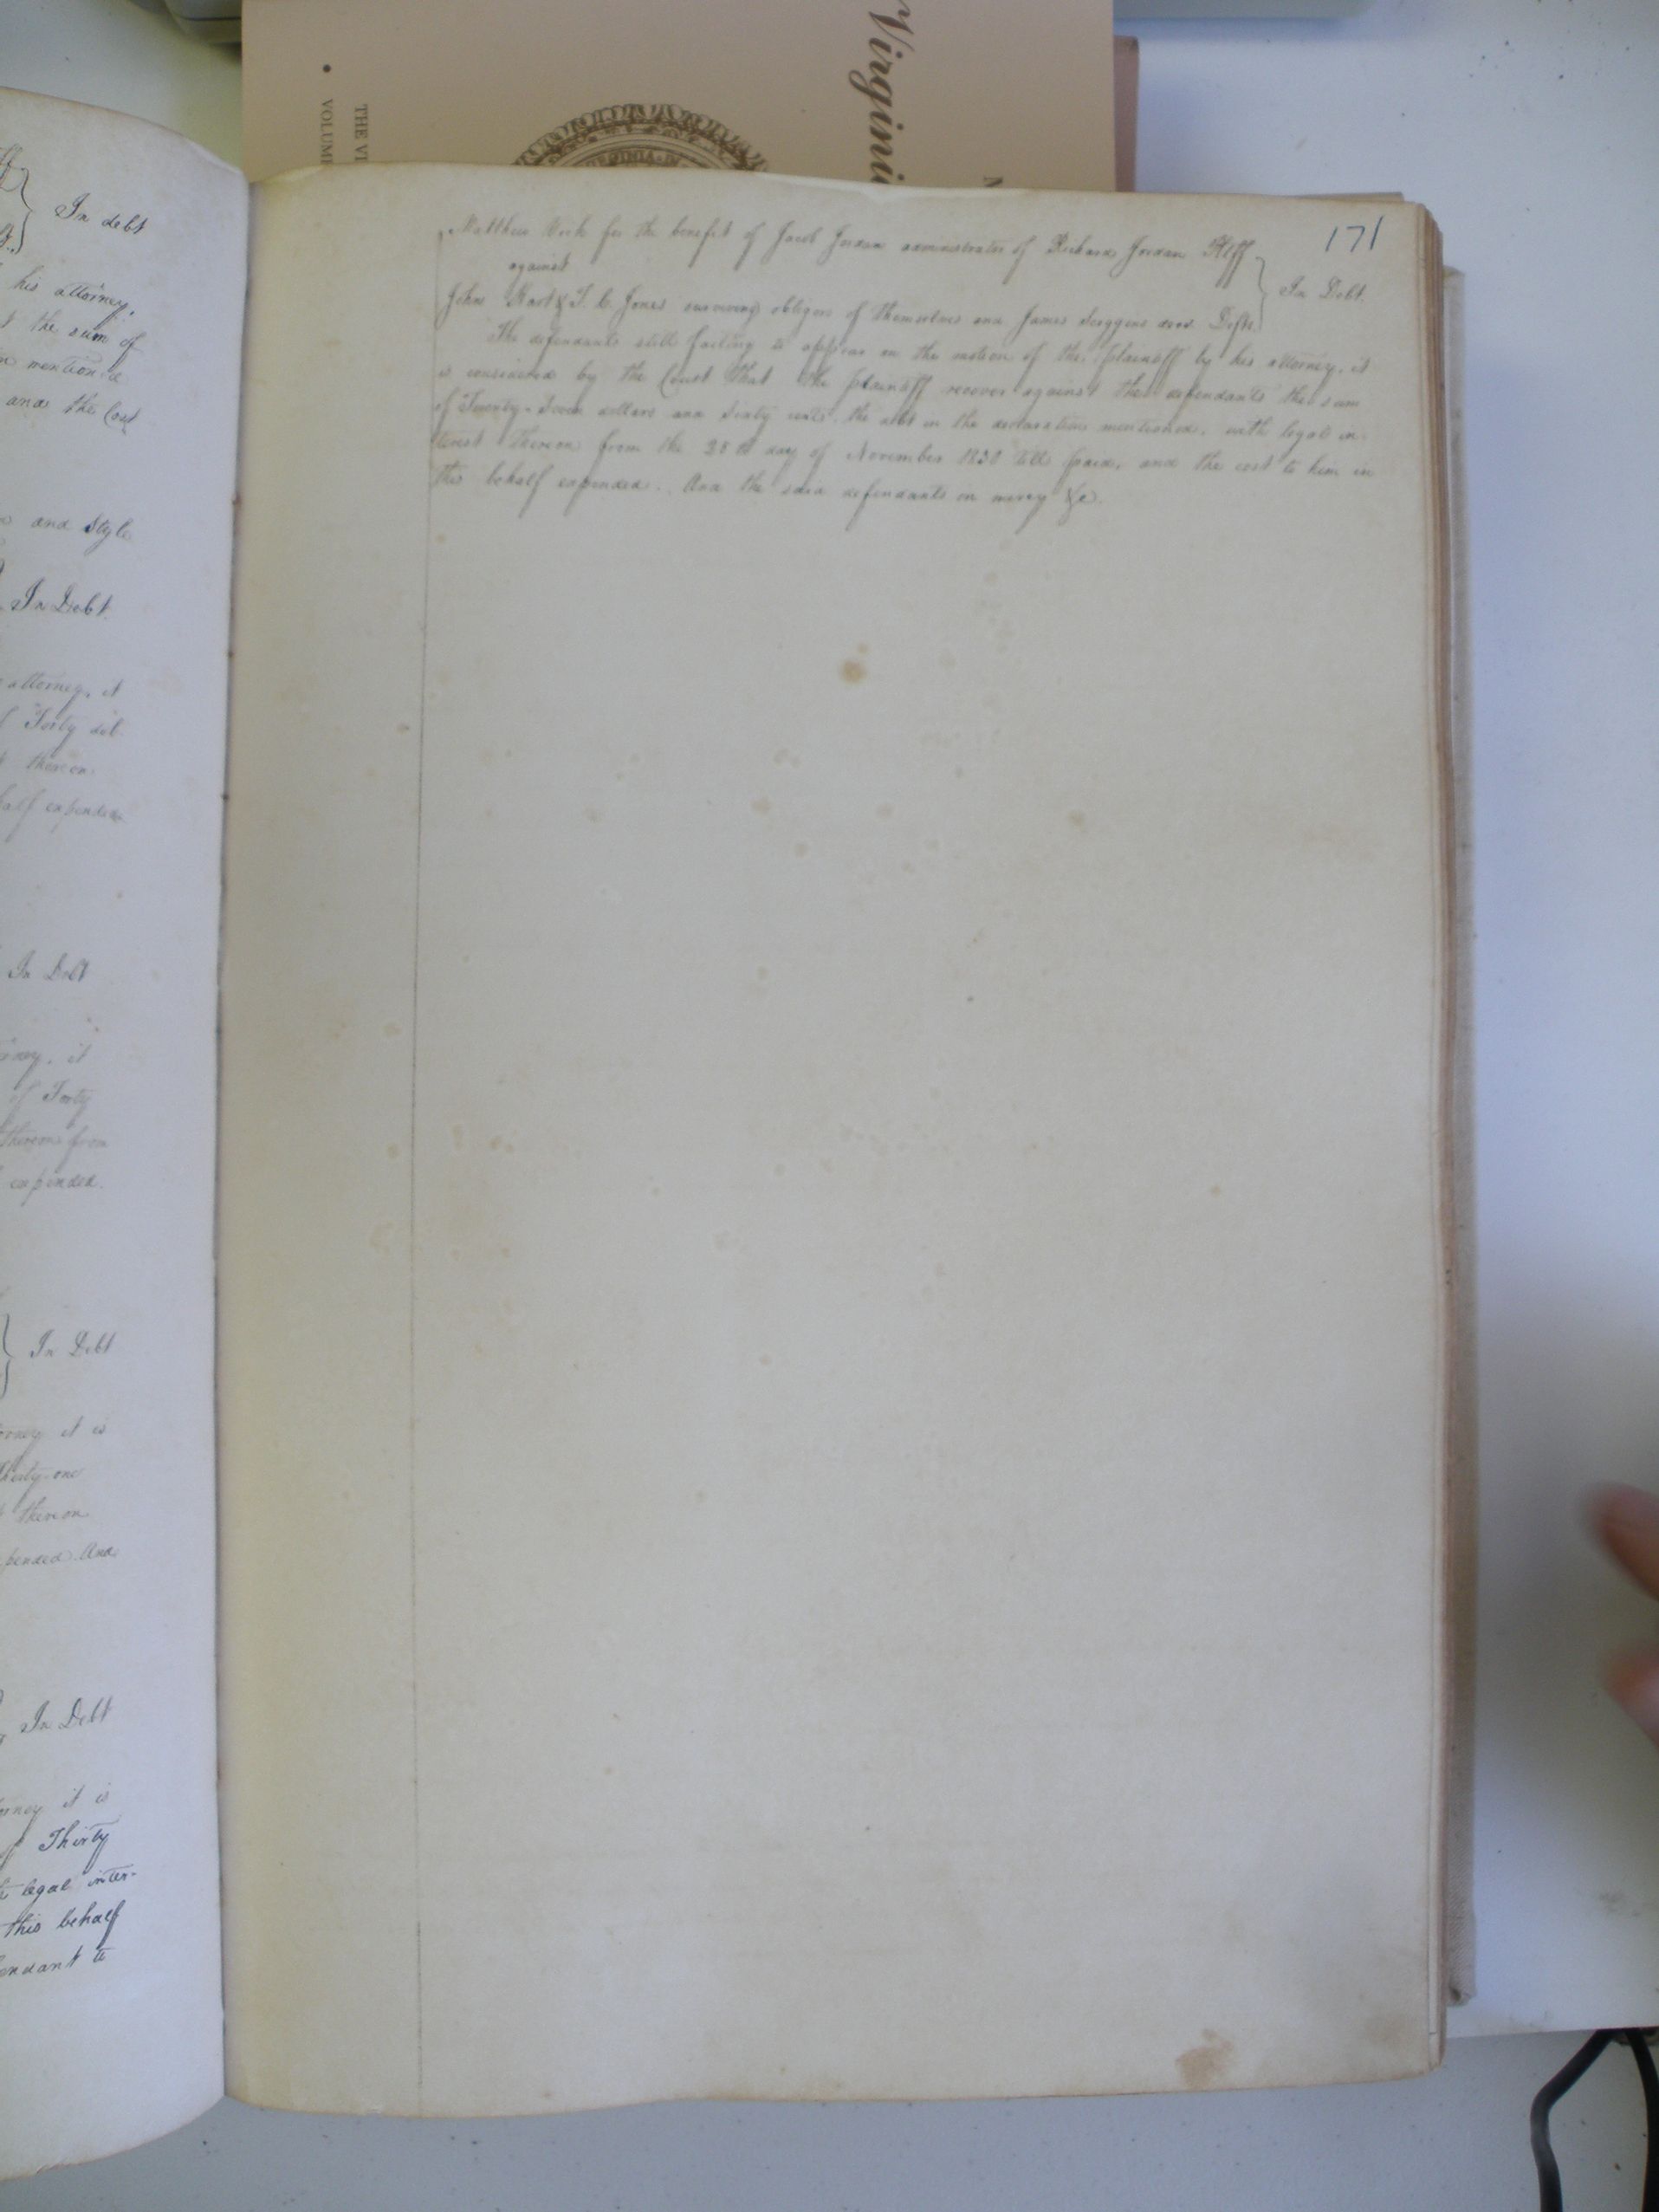 Virgini
THE VI
VOLUM
In debt
his attorney,
the sum of
mentioned
and the Cost
and Style
In Debt.
attorney, it
Forty dol
thereon
half expended
In Debt
it
of Forty
thereon from
expended.
In Debt
it is
thirty-one
thereon
And
In Debt
it is
Thirty
legal inter-
this behalf
to
171
Matthew for the benefit of Jacob Jordan administrator of Richard Jordan Pltff
against
In Debt.
John & T. C. Jones surviving obligors of themselves and James Scoggins decd. Defts.
The defendants still failing to appear on the motion of the plaintiff by his attorney, it
is considered by the Court that the plaintiff recover against the defendants the sum
of Twenty-Seven dollars and Sixty cents, the debt in the declaration mentioned, with legal in-
terest thereon from the 25th day of November 1830 till paid, and the cost to him in
this behalf expended. And the said defendants in mercy &c.